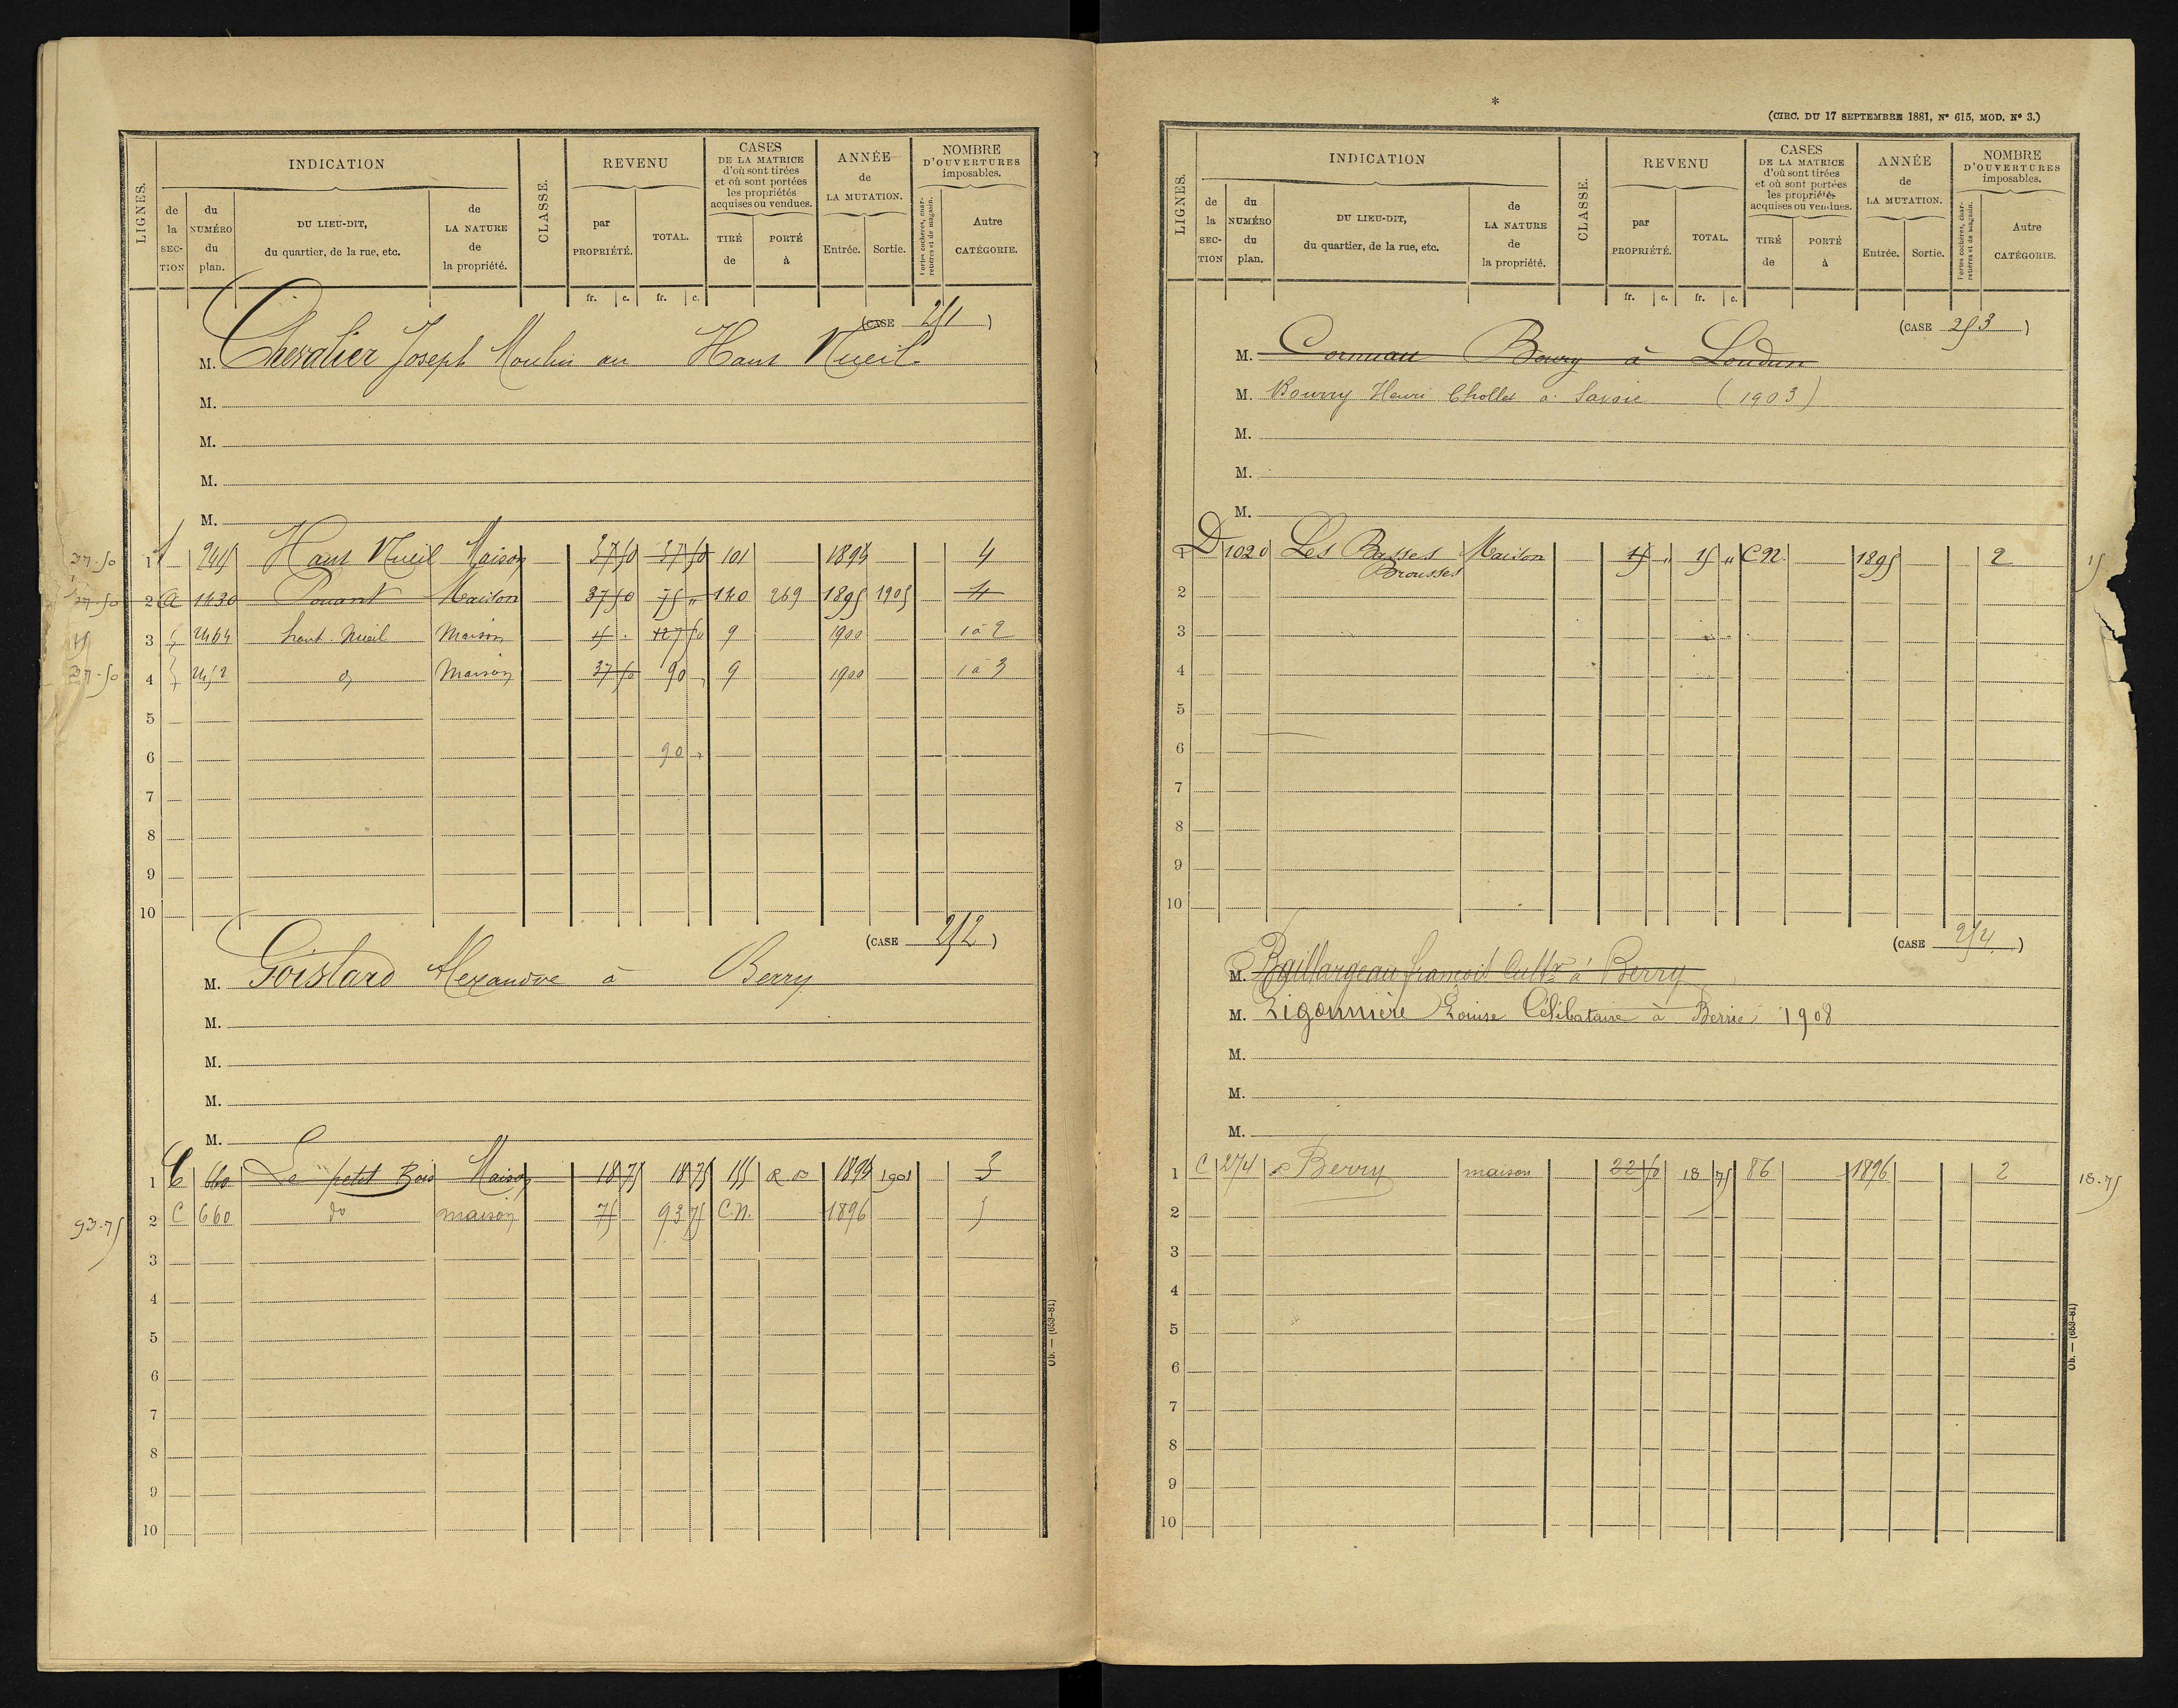 LIGNES.
INDICATION
de la SECTION
du NUMÉRO du plan.
DU LIEU-DIT, du quartier, de la rue, etc.
de LA NATURE de la propriété.
CLASSE.
REVENU
par PROPRIÉTÉ.
TOTAL.
fr. c. fr. c.
CASES
DE LA MATRICE
d'où sont tirées
et où sont portées
les propriétés
acquises ou vendues.
TIRÉ de
PORTÉ à
ANNÉE
de
LA MUTATION.
Entrée. Sortie.
NOMBRE
D'OUVERTURES
imposables.
Portes cochères, charretières et de magasin.
Autre CATÉGORIE.
(CASE 251)
M. Chevalier Joseph Moulin au Haut Nueil
M.
M.
M.
M.
37.50 1 Haut Nueil Maison 37 50 37 50 101 4
2 a 1430 Pouant Maison 37 50 75 " 269 1895 1905 4
15 3 2464 haut Nueil Maison 15 . 127 50 9 1900 1 à 2
37.50 4 2452 Maison 37 50 90 9 1900 1 à 3
5
6 90
7
8
9
10
(CASE 252)
M. Goislard Alexandre à Berry
M.
M.
M.
M.
1 C 660 Le petit Bois Maison 18 75 18 75 155 1901 3
93.75 2 C 660 do maison 75 93 75 C.N. 1896 5
3
4
5
6
7
8
9
10
Ob. — (653-81)
*
(CIRC. DU 17 SEPTEMBRE 1881, N° 615, MOD. N° 3.)
LIGNES.
INDICATION
de la SECTION
du NUMÉRO du plan.
DU LIEU-DIT, du quartier, de la rue, etc.
de LA NATURE de la propriété.
CLASSE.
REVENU
par PROPRIÉTÉ.
TOTAL.
fr. c. fr. c.
CASES
DE LA MATRICE
d'où sont tirées
et où sont portées
les propriétés
acquises ou vendues.
TIRÉ de
PORTÉ à
ANNÉE
de
LA MUTATION.
Entrée. Sortie.
NOMBRE
D'OUVERTURES
imposables.
Portes cochères, charretières et de magasin.
Autre CATÉGORIE.
(CASE 253)
M. Cornuau Boury à Loudun
M. Bourry Henri Chollet à (1903)
M.
M.
M.
1 D 1020 Les Basses Brousses Maison 15 " 15 " C.N. 1895 2 15
2
3
4
5
6
7
8
9
10
(CASE 254)
M. Baillargeau françois Cultr à Berry
M. Ligonnière Louise Célibataire à Berrie 1908
M.
M.
M.
1 C 274 Berry maison 22 50 18 75 86 1896 2 18.75
2
3
4
5
6
7
8
9
10
Ob. — (653-81)